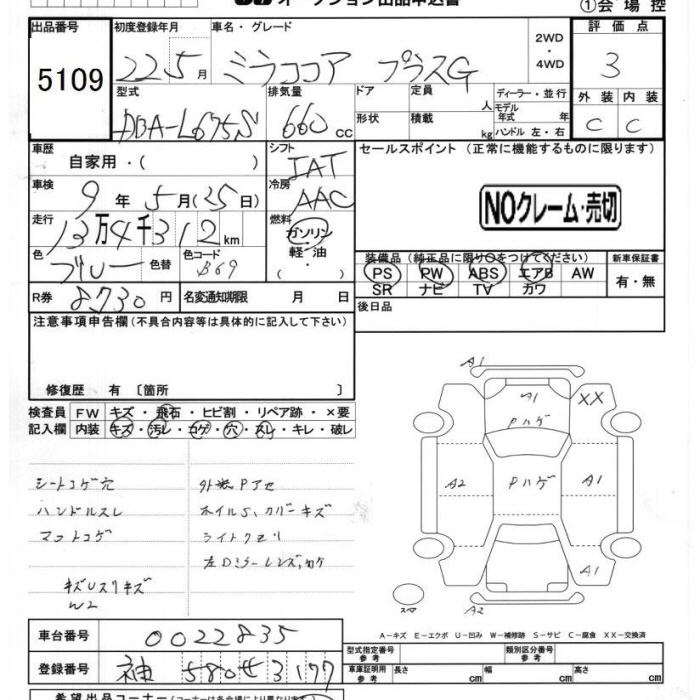 オークション出品申込書
①会場控
出品番号 初度登録年月 車名・グレード 2WD・4WD 評価点
5109 22 5月 ミラココア プラスG 3
型式 排気量 ドア 定員 人 ディーラー・並行 外装 内装
DBA-L675S 660cc 形状 積載 kg モデル年式 年 ハンドル 左・右 C C
車歴 自家用・( ) シフト IAT セールスポイント (正常に機能するものに限ります)
車検 9年5月(25日) 冷房 AAC
NOクレーム・売切
走行 13万4千312km 燃料 ガソリン・軽油・( )
色 ブルー 色替 色コード B69
装備品(純正品に限り○をつけてください) 新車保証書
PS PW ABS エアB AW 有・無
SR ナビ TV カワ
R券 8730円 名変通知期限 月 日
後日品
注意事項申告欄(不具合内容等は具体的に記入して下さい)
修復歴 有 〔箇所 〕
検査員 FW キズ・飛石・ヒビ割・リペア跡・×要
記入欄 内装 キズ・汚レ・コゲ・穴・スレ・キレ・破レ
シートコゲ穴 外装Pアセ
ハンドルスレ ホイルS、カバーキズ
マットコゲ ライトクモリ
左Dミラーレンズ
キズUスリキズ
W2
A1
A1 XX
Pハゲ
A2 Pハゲ A1
A1
スマ A2
A-キズ E-エクボ U-凹み W-補修跡 S-サビ C-腐食 XX-交換済
車台番号 0022835
型式指定番号 参考 類別区分番号 参考
登録番号 580 せ 3177
車庫証明用 参考 長さ cm 幅 cm 高さ cm
希望出品コーナー